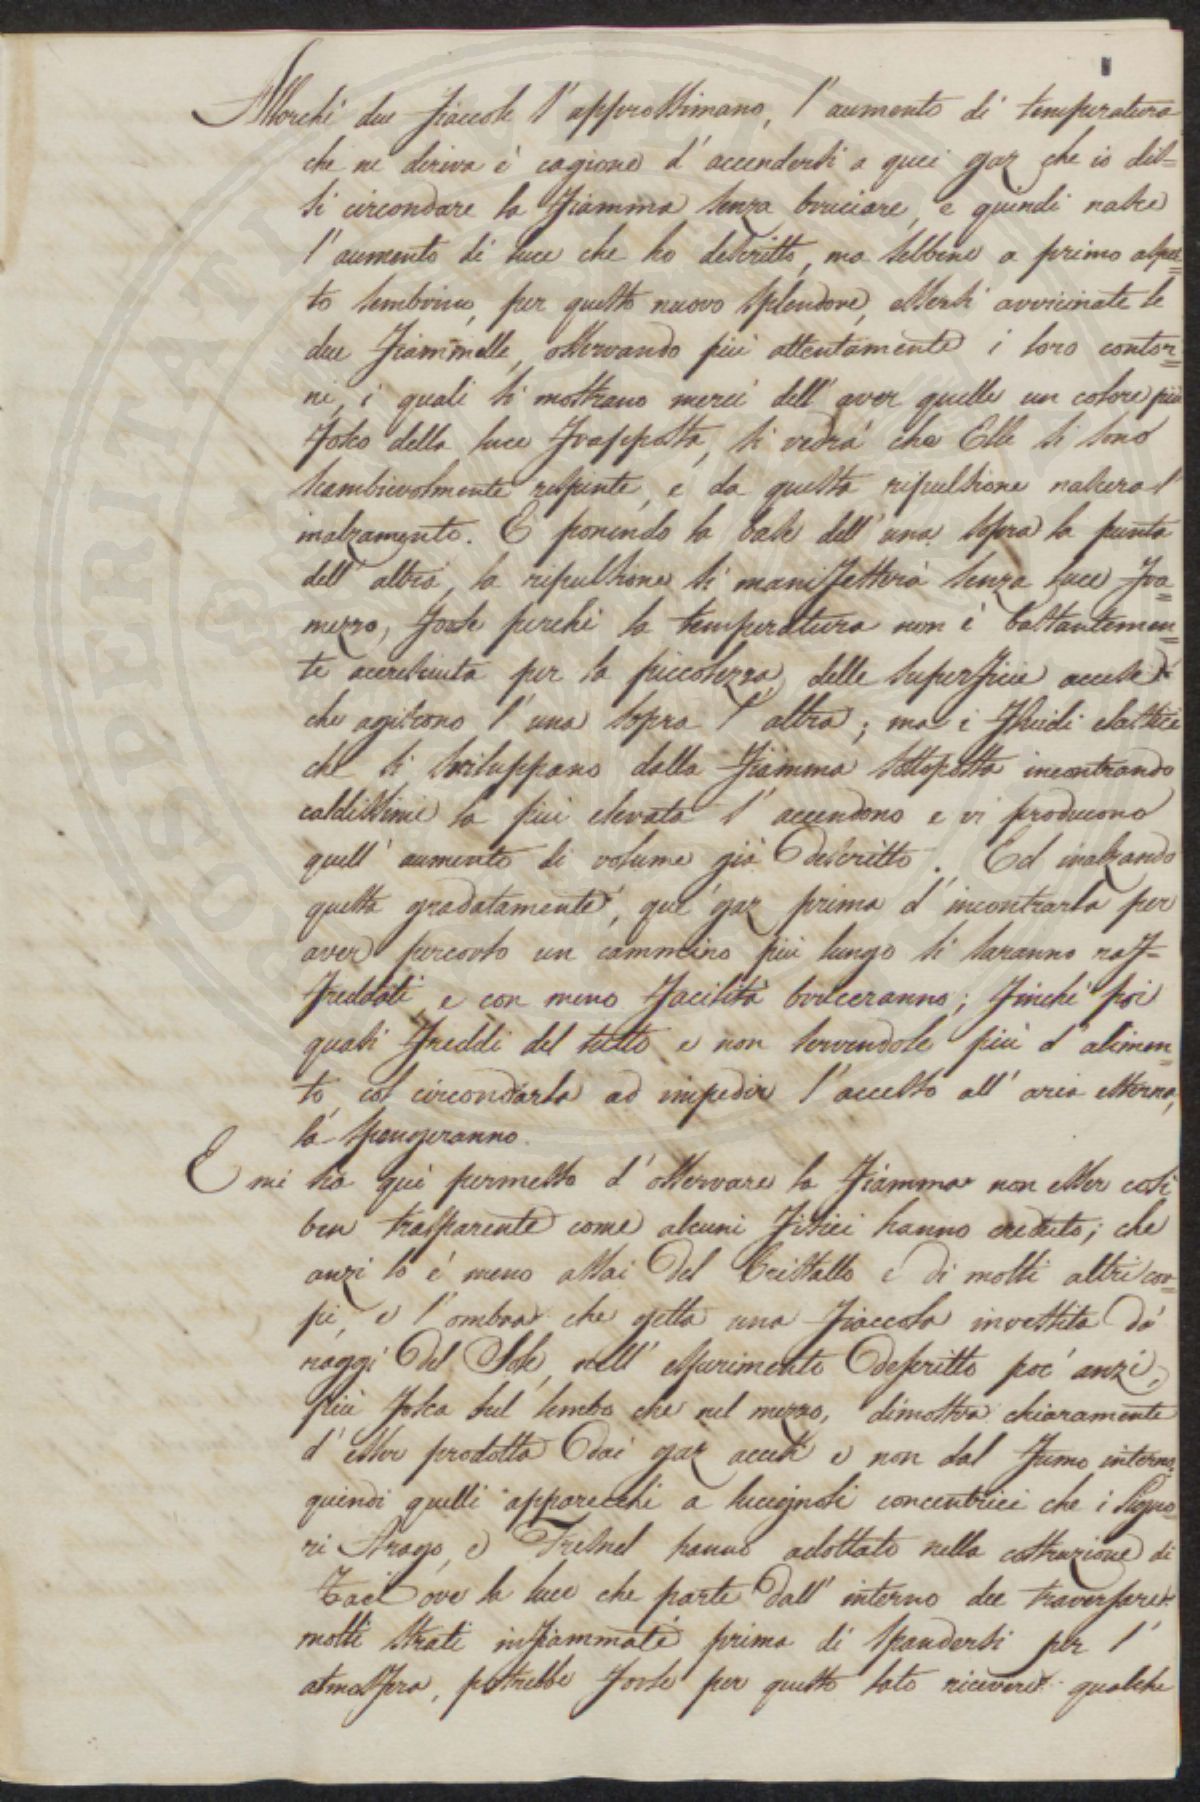 Allorchè due fiaccole s'approssimano, l'aumento di temperatura
che ne deriva è cagione d'accendersi a quei gaz che io dis=
si circondare la fiamma senza bruciare, e quindi nasce
l'aumento di luce che ho descritto, ma sebbene a primo aspet=
to sembrino, per questo nuovo splendore, essersi avvicinate le
due fiammelle, osservando più attentamente i loro contor=
ni, i quali si mostrano mercè dell'aver quelle un colore più
fosco della luce frapposta, si vedrà che Elle si sono
scambievolmente respinte, e da questa ripulsione nascerà l'
inalzamento. E ponendo la base dell'una sopra la punta
dell'altra, la ripulsione si manifesterà senza luce fra=
mezzo, forse perchè la temperatura non è bastantemen=
te accresciuta per la piccolezza delle superficie accese
che agiscono l'una sopra l'altra; ma i fluidi elastici
che si sviluppano dalla fiamma sottoposta incontrando
caldissimi la più elevata s'accendono e vi producono
quell'aumento di volume già descritto. Ed inalzando
questa gradatamente, que' gaz prima d'incontrarla per
aver percorso un cammino più lungo si saranno raf=
freddati e con meno facilità bruceranno; finchè poi
quasi freddi del tutto e non servendole più d'alimen=
to, col circondarla ad impedir l'accesso all'aria esterna,
la spengeranno.
E mi sia quì permesso d'osservare la fiamma non esser così
ben trasparente come alcuni fisici hanno creduto; che
anzi lo è meno assai del Cristallo e di molti altri cor=
pi, e l'ombra che getta una fiaccola investita da'
raggi del Sole, nell'esperimento descritto poc'anzi,
più fosca sul lembo che nel mezzo, dimostra chiaramente
d'esser prodotta dai gaz accesi e non dal fumo interno:
quindi quelli apparecchi a lucignoli concentrici che i Signo=
ri Arago, e Fresnel hanno adottato nella costruzione di
Fari ove la luce che parte dall'interno dee traversare
molti strati infiammati prima di spandersi per l'
atmosfera, potrebbe forse per questo lato ricevere qualche